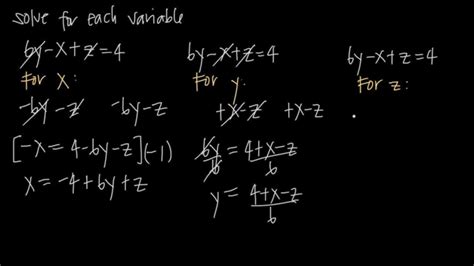 solve for each variable
6y-x+z=4
For x:
-6y-z -6y-z
[-x=4-6y-z](-1)
x=-4+6y+z
6y-x+z=4
For y:
+x-z +x-z
6y/6 = 4+x-z/6
y = 4+x-z/6
6y-x+z=4
For z: